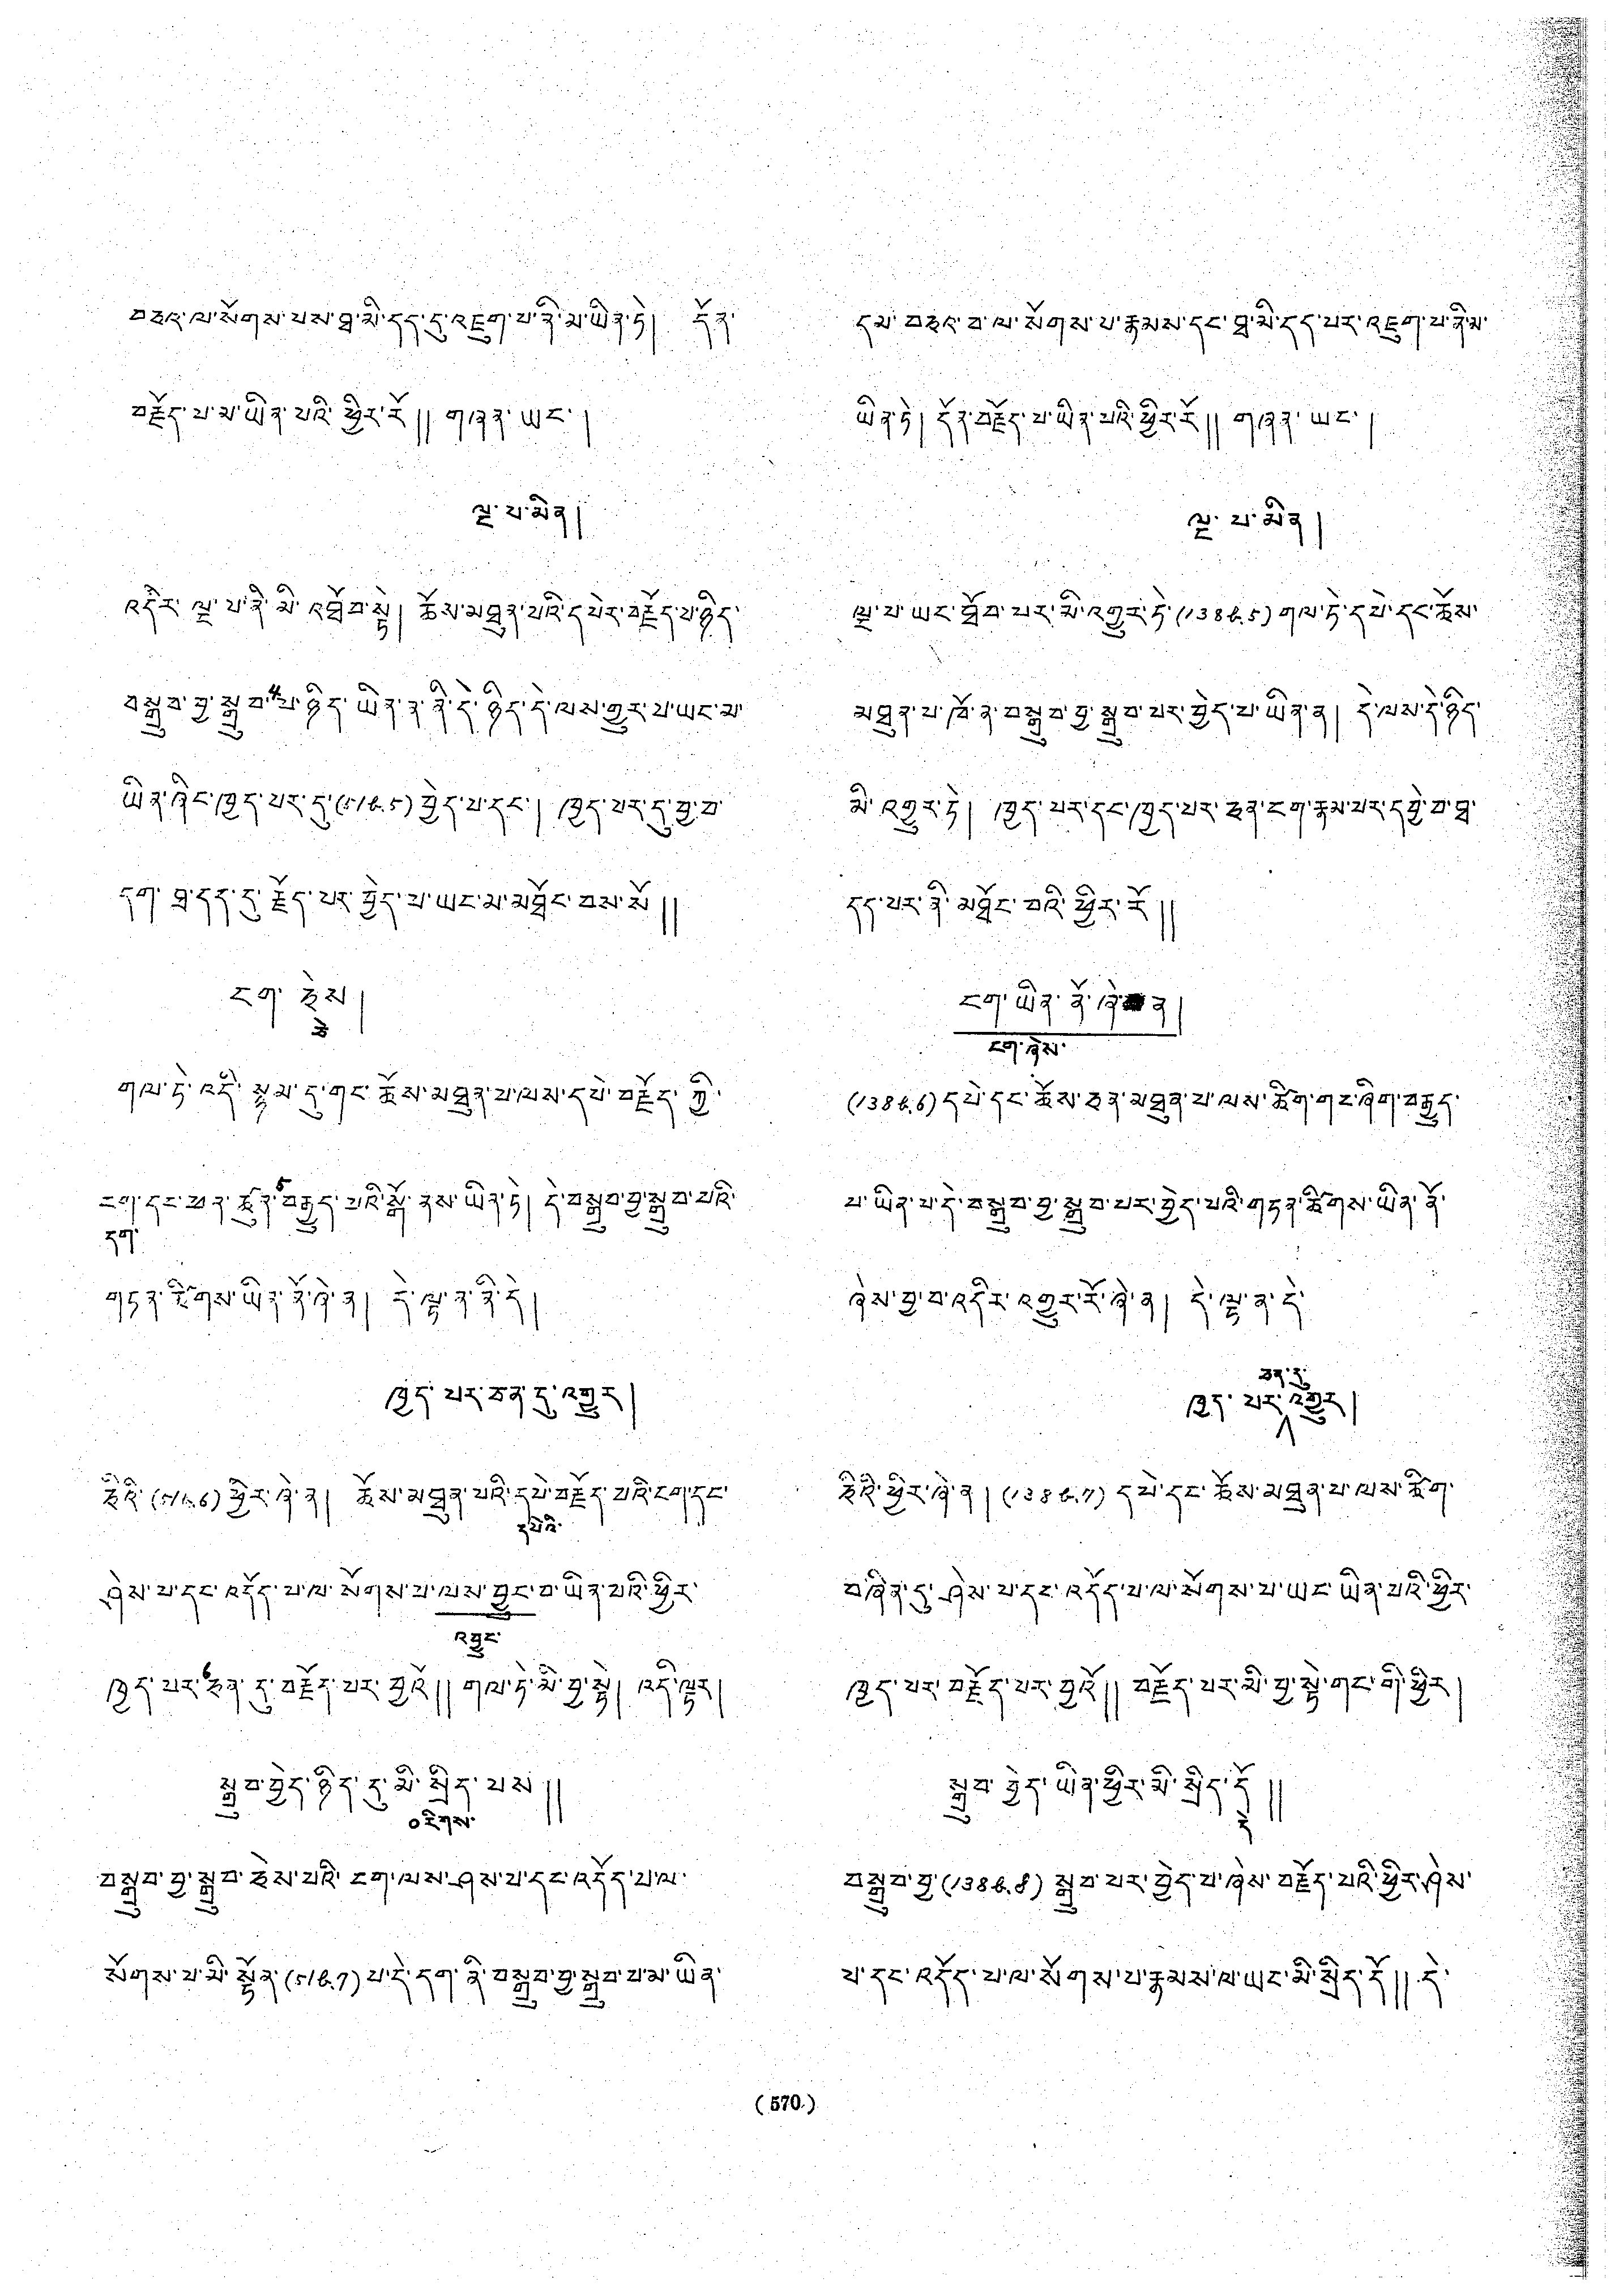 བཅའ་ལ་སོགས་པས་ཐ་མི་དད་དུ་འཇུག་པ་ནི་མ་ཡིན་ཏེ། དོན་
བརྗོད་པ་མ་ཡིན་པའི་ཕྱིར་རོ།། གཞན་ཡང་།
ལྔ་པ་མིན།
འདིར་ལྔ་པ་ནི་མི་འཐོབ་སྟེ། ཆོས་མཐུན་པའི་དཔེར་བརྗོད་པ་ཉིད་
བསྒྲུབ་བྱ་སྒྲུབ་4པ་ཉིད་ཡིན་ན་ནི་དེ་ཉིད་དེ་ལས་གུར་པ་ཡང་མ་
ཡིན་ཞིང་ཁྱད་པར་དུ་(51b.5)བྱེད་པ་དང་། ཁྱད་པར་དུ་བྱ་བ་
དག་ཐ་དད་དུ་རྗོད་པར་བྱེད་པ་ཡང་མ་མཐོང་བས་སོ།།
ངག་ཅེས།
ཅེ
གལ་ཏེ་འདི་སྙམ་དུ་གང་ཆོས་མཐུན་པ་ལས་དཔེ་བརྗོད་ཀྱི་
ངག་དང་ཕན་ཚུན་5བརྒྱུད་པའི་སྒོ་ནས་ཡིན་ཏེ། དེ་བསྒྲུབ་བྱ་སྒྲུབ་པའི་
དག་
གཏན་ཚིགས་ཡིན་ནོ་ཞེ་ན། དེ་ལྟ་ན་ནི་དེ།
ཁྱད་པར་ཅན་དུ་འགྱུར།
ཅིའི་(51b.6)ཕྱིར་ཞེ་ན། ཆོས་མཐུན་པའི་དཔེ་བརྗོད་པའི་ངག་དང་
དཔེའི་
ཤེས་པ་དང་འདོད་པ་ལ་སོགས་པ་ལས་བྱུང་བ་ཡིན་པའི་ཕྱིར་
འབྱུང་
ཁྱད་པར་6ཅན་དུ་བརྗོད་པར་བྱའོ།། གལ་ཏེ་མི་བྱ་སྟེ། འདི་ལྟར།
སྒྲུབ་བྱེད་ཉིད་དུ་མི་སྲིད་པས།།
༠རིགས་
བསྒྲུབ་བྱ་སྒྲུབ་ཅེས་པའི་ངག་ལས་ཤས་པ་དང་འདོད་པ་ལ་
སོགས་པ་མི་སྟོན་(51b.7)པ་དེ་དག་ནི་བསྒྲུབ་བྱ་སྒྲུབ་པ་མ་ཡིན་
དམ་བཅའ་བ་ལ་སོགས་པ་རྣམས་དང་ཐ་མི་དད་པར་འཇུག་པ་ནི་མ་
ཡིན་ཏེ། དོན་བརྗོད་པ་ཡིན་པའི་ཕྱིར་རོ།། གཞན་ཡང་།
ལྔ་པ་མིན།
ལྔ་པ་ཡང་ཐོབ་པར་མི་འགྱུར་ཏེ་(138b.5)གལ་ཏེ་དཔེ་དང་ཆོས་
མཐུན་པ་ཁོ་ན་བསྒྲུབ་བྱ་སྒྲུབ་པར་བྱེད་པ་ཡིན་ན། དེ་ལས་དེ་ཉིད་
མི་འགྱུར་ཏེ། ཁྱད་པར་དང་ཁྱད་པར་ཅན་ངག་རྣམ་པར་དབྱེ་བ་ཐ་
དད་པར་ནི་མཐོང་བའི་ཕྱིར་རོ།།
ངག་ཡིན་ནོ་ཞེ་ན།
ངག་ཞེས་
(138b.6)དཔེ་དང་ཆོས་ཅན་མཐུན་པ་ལས་ཚིག་གང་ཞིག་བརྒྱུད་
པ་ཡིན་པ་དེ་བསྒྲུབ་བྱ་སྒྲུབ་པར་བྱེད་པའི་གཏན་ཚིགས་ཡིན་ནོ་
ཞེས་བྱ་བ་འདིར་འགྱུར་རོ་ཞེ་ན། དེ་ལྟ་ན་དེ་
ཅན་དུ་
ཁྱད་པར་འགྱུར།
ཅིའི་ཕྱིར་ཞེ་ན། (138b.7) དཔེ་དང་ཆོས་མཐུན་པ་ལས་ཚིག་
བཞིན་དུ་ཤེས་པ་དང་འདོད་པ་ལ་སོགས་པ་ཡང་ཡིན་པའི་ཕྱིར་
ཁྱད་པར་བརྗོད་པར་བྱའོ།། བརྗོད་པར་མི་བྱ་སྟེ་གང་གི་ཕྱིར།
སྒྲུབ་བྱེད་ཡིན་ཕྱིར་མི་སྲིད་དོ།།
དེ
བསྒྲུབ་བྱ་(138b.8) སྒྲུབ་པར་བྱེད་པ་ཞེས་བརྗོད་པའི་ཕྱིར་ཤེས་
པ་དང་འདོད་པ་ལ་སོགས་པ་རྣམས་ལ་ཡང་མི་སྲིད་དོ།། དེ་
(570)